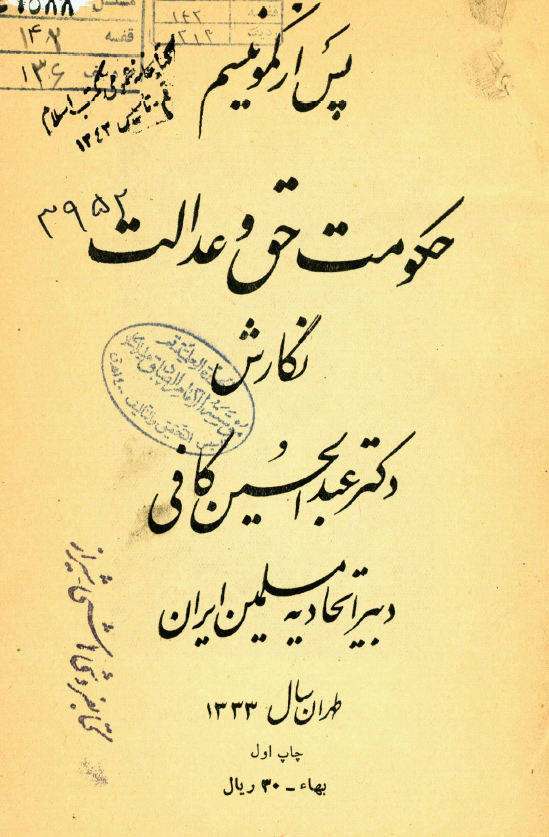 ۱۴۲
۱۴۲
قفسه
۱۳۶
۱۳۴۳
پس از کمونیسم
۳۹۵۲
حکومت حق و عدالت
نگارش
دکتر عبدالحسین کافی
دبیر اتحادیه مسلمین ایران
طهران سال ۱۳۳۳
چاپ اول
بهاء - ۳۰ ریال